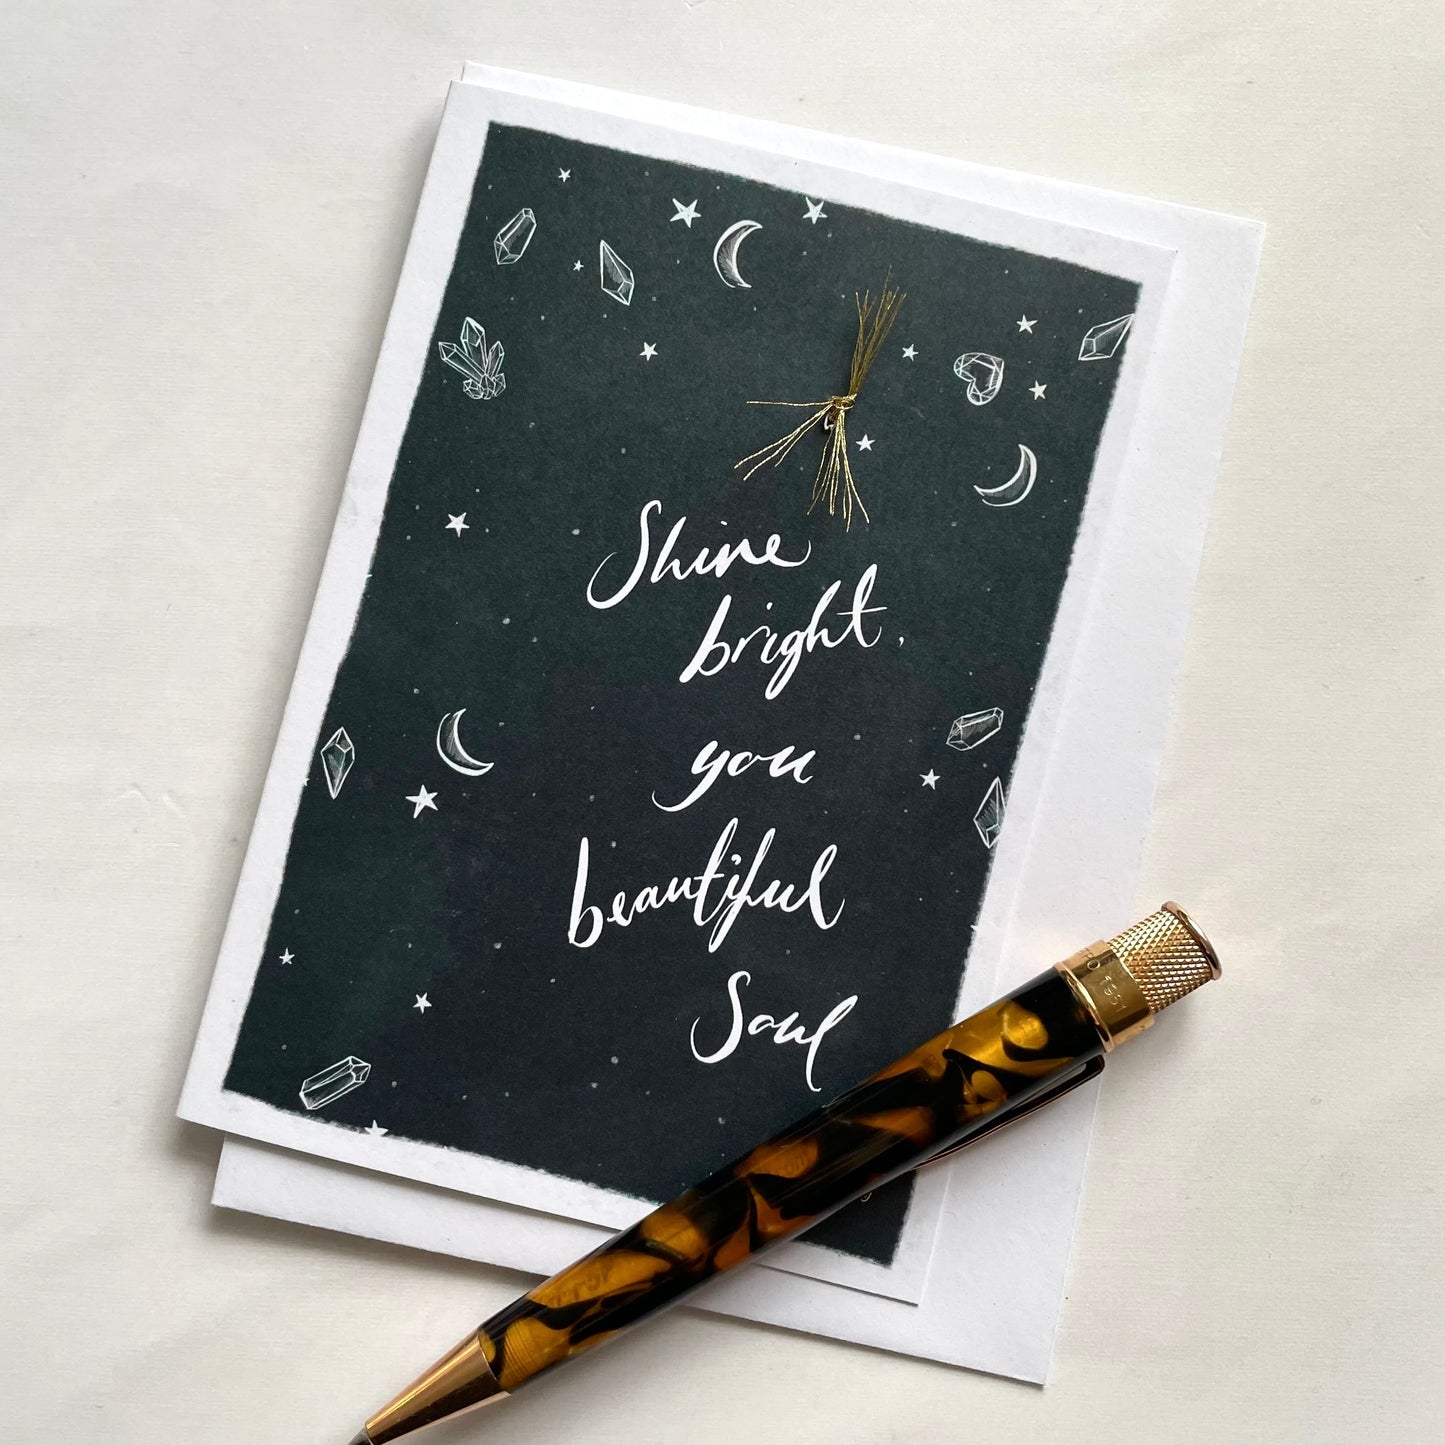 Shine
bright,
you
beautiful
Soul
RO 1951